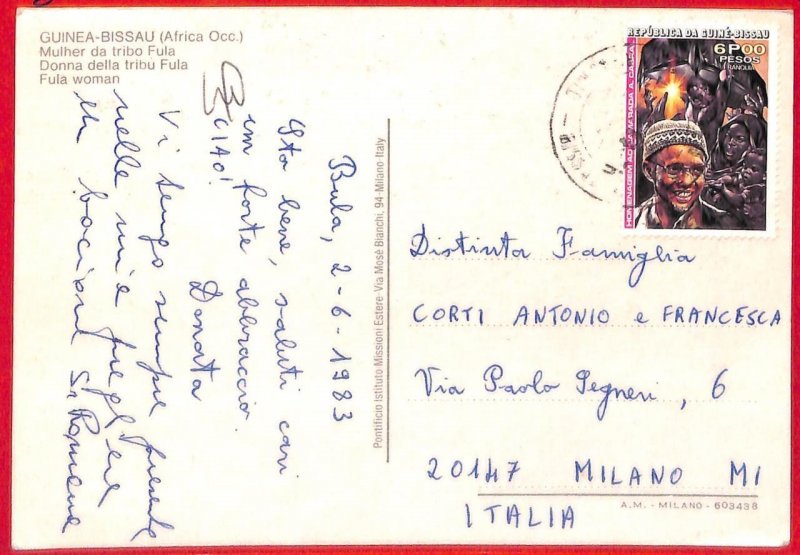 GUINEA-BISSAU (Africa Occ.)
Mulher da tribo Fula
Donna della tribu Fula
Fula woman
REPÚBLICA DA GUINÉ-BISSAU
6P00
PESOS
HOMENAGEM AO
Bula, 2-6-1983
Sto bene, saluti cari
un forte abbraccio.
CIAO!
Donata
Vi tengo sempre presente
nelle mie preghiere
Un bacione Sr Romana
Pontificio Istituto Missioni Estere-Via Mosè Bianchi, 94-Milano-Italy
Distinta Famiglia
CORTI ANTONIO e FRANCESCA
Via Paolo Segneri, 6
20147 MILANO MI
ITALIA
A.M. - MILANO - 603438